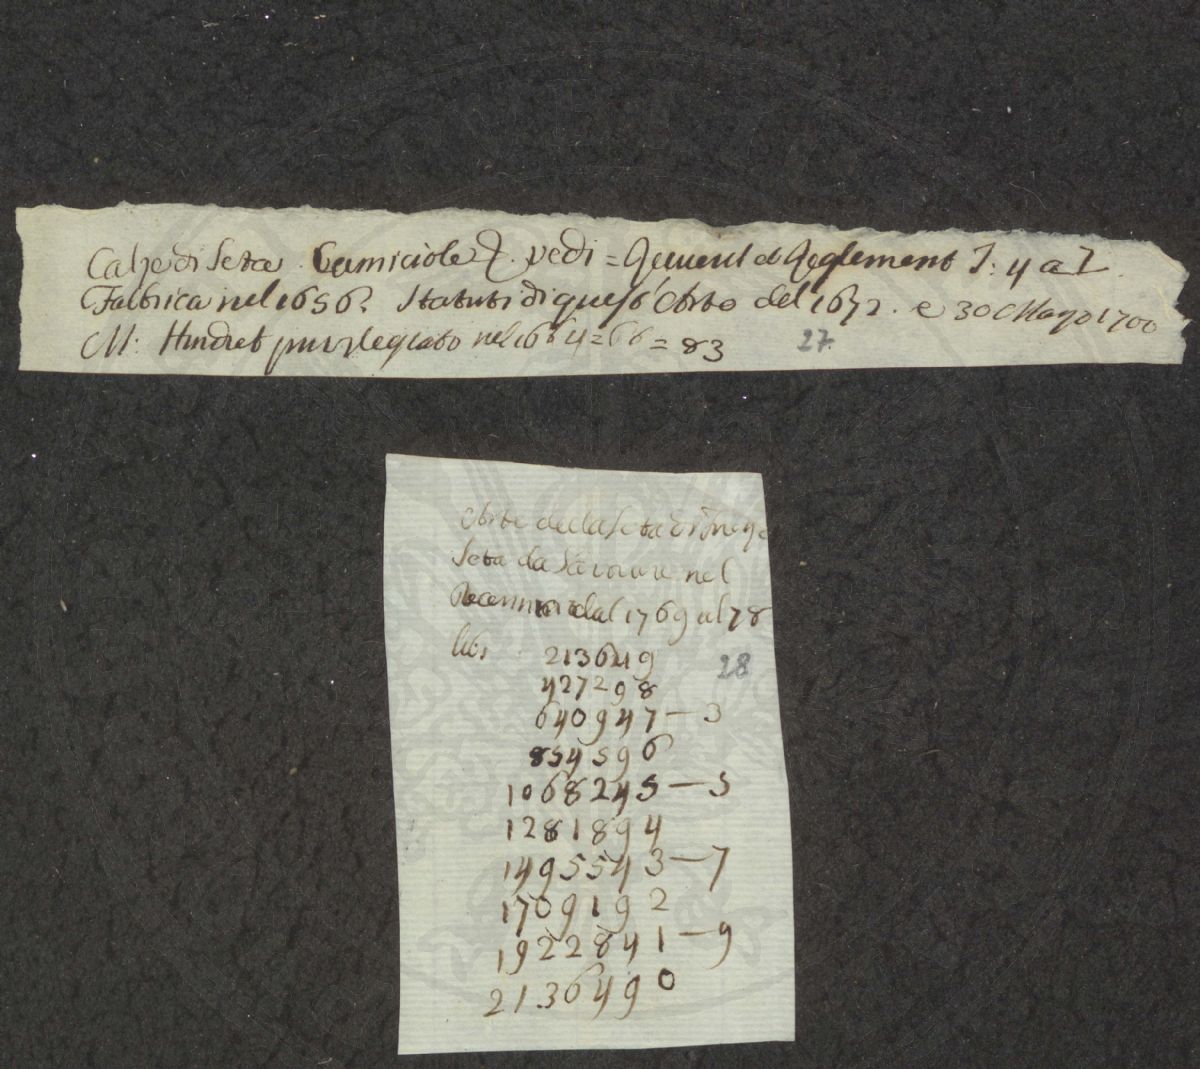 Calze di Seta Camiciole &. vedi = Recueil et Reglement T: 4 a I
Fabrica nel 1656? Statuti di quest'Arte del 1672. e 30 Mago 1700
M: Hindret privilegiato nel 1664=66=83 27
Arte della Seta
Seta da lavorare nel
Decennio dal 1769 al 78
lib.
213649 28
427298
640947—3
854596
1068245—5
1281894
1495543—7
1709192
1922841—9
2136490